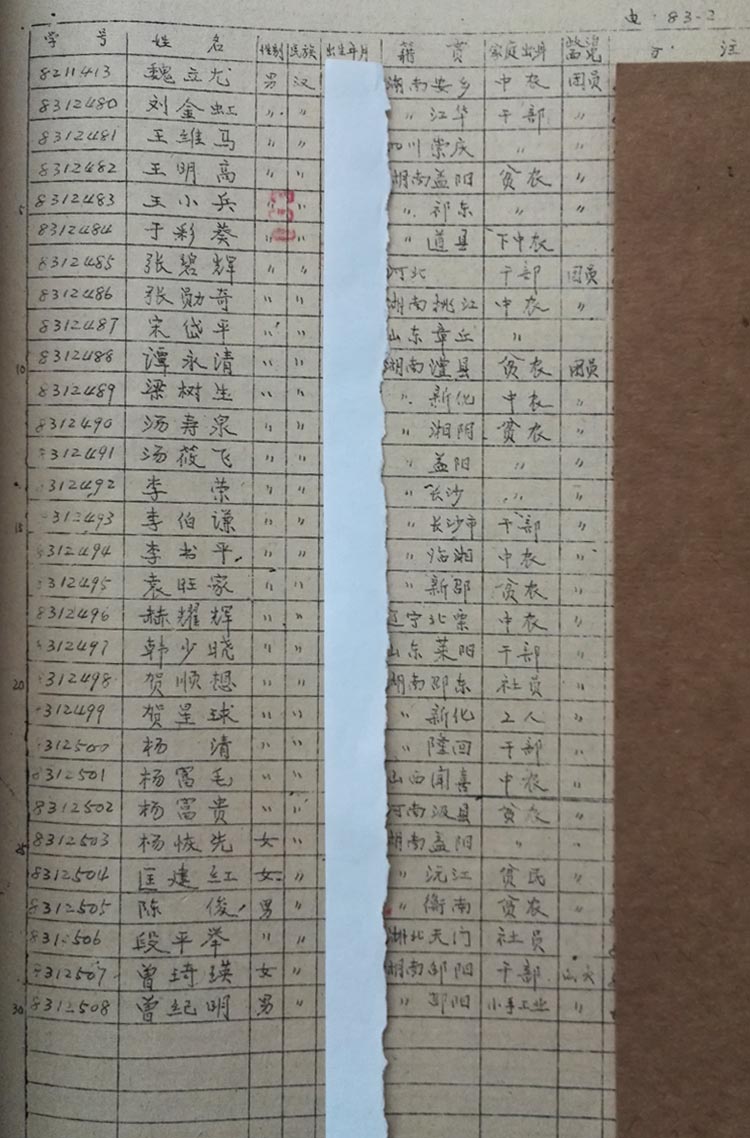 电83-2
学号 姓名 性别 民族 出生年月 籍贯 家庭出身 党団 注
8211413 魏立尤 男 汉 湖南安乡 中农 团员
8312480 刘金虹 〃 〃 〃 江华 干部 〃
8312481 王维马 〃 〃 四川崇庆 〃 〃
8312482 王明高 〃 〃 湖南益阳 贫农 〃
5 8312483 王小兵 〃 〃 〃 祁东 〃 〃
8312484 于彩葵 〃 〃 〃 道县 下中农
8312485 张碧辉 〃 〃 河北 干部 团员
8312486 张勋奇 〃 〃 湖南桃江 中农 〃
8312487 宋岱平 〃 〃 山东章丘 〃
10 8312488 谭永清 〃 〃 湖南澧县 贫农 团员
8312489 梁树生 〃 〃 〃 新化 中农 〃
8312490 汤寿泉 〃 〃 〃 湘阴 贫农 〃
8312491 汤筱飞 〃 〃 〃 益阳 〃 〃
312492 李荣 〃 〃 〃 长沙 〃 〃
15 312493 李伯谦 〃 〃 〃 长沙市 干部 〃
8312494 李书平 〃 〃 〃 临湘 中农 〃
8312495 袁旺家 〃 〃 〃 新邵 贫农 〃
8312496 赫耀辉 〃 〃 辽宁北票 中农 〃
8312497 韩少晓 〃 〃 山东莱阳 干部 〃
20 8312498 贺顺想 〃 〃 湖南邵东 社员 〃
312499 贺星球 〃 〃 〃 新化 工人 〃
312500 杨清 〃 〃 〃 隆回 干部 〃
8312501 杨富毛 〃 〃 山西闻喜 中农 〃
8312502 杨富贵 〃 〃 河南汲县 贫农 〃
25 8312503 杨恢先 女 〃 湖南益阳 〃 〃
8312504 匡建红 女 〃 〃 沅江 贫民 〃
8312505 陈俊 男 〃 〃 衡南 贫农 〃
831506 段平举 〃 〃 湖北天门 社员
8312507 曾琦瑛 女 〃 湖南邵阳 干部
30 8312508 曾纪明 男 〃 〃 邵阳 小手工业 〃